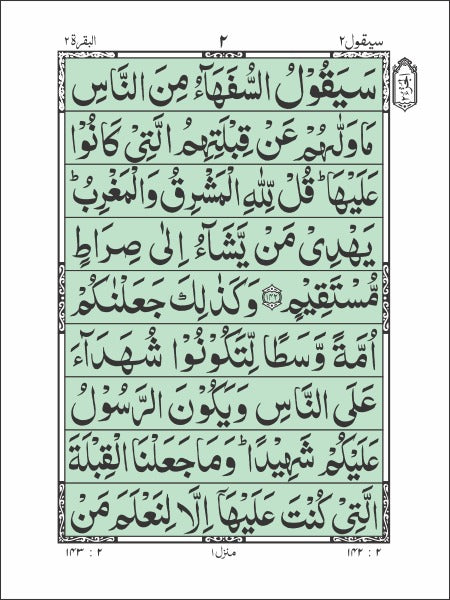 سيقول ٢
٢
البقرة ٢
سَيَقُوْلُ السُّفَهَآءُ مِنَ النَّاسِ
مَا وَلّٰىهُمْ عَنْ قِبْلَتِهِمُ الَّتِىْ كَانُوْا
عَلَيْهَا ؕ قُلْ لِّلّٰهِ الْمَشْرِقُ وَالْمَغْرِبُ ؕ
يَهْدِىْ مَنْ يَّشَآءُ اِلٰى صِرَاطٍ
مُّسْتَقِيْمٍ ﴿۱۴۲﴾ وَكَذٰلِكَ جَعَلْنٰكُمْ
اُمَّةً وَّسَطًا لِّتَكُوْنُوْا شُهَدَآءَ
عَلَى النَّاسِ وَيَكُوْنَ الرَّسُوْلُ
عَلَيْكُمْ شَهِيْدًا ؕ وَمَا جَعَلْنَا الْقِبْلَةَ
الَّتِىْ كُنْتَ عَلَيْهَآ اِلَّا لِنَعْلَمَ مَنْ
۱۴۲ : ۲
منزل ۱
۱۴۳ : ۲